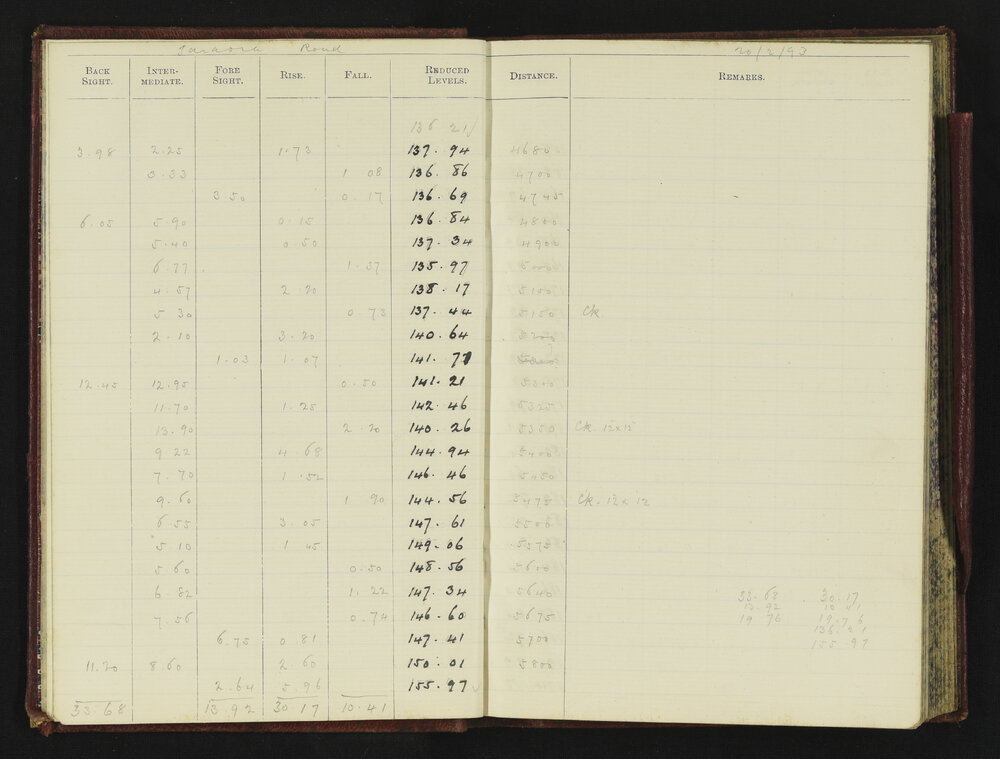 Road 20/2/93
BACK SIGHT. INTER-MEDIATE. FORE SIGHT. RISE. FALL. REDUCED LEVELS. DISTANCE. REMARKS.
136 21
3.98 2.25 1.73 137.94 4680
0.33 1 08 136.86 4700
3 50 0.17 136.69 4745
6.05 5.90 0.15 136.84 4800
5.40 0.50 137.34 4900
6.77 1.37 135.97 5000
4.57 2.20 138.17 5100
5 30 0.73 137.44 5150 Ck
2.10 3.20 140.64 5200
1.03 1.07 141.71
12.45 12.95 0.50 141.21 5300
11.70 1.25 142.46 5325
13.90 2.20 140.26 5350 Ck. 12x12
9 22 4.68 144.94 5400
7.70 1.52 146.46 5450
9.60 1 90 144.56 5475 Ck. 12x12
6.55 3.05 147.61 5500
5.10 1 45 149.06 5575
5 60 0.50 148.56 5600
6.82 1.22 147.34 5640 33.68 30.17
13.92 10 41
7.56 0.74 146.60 5675 19 76 19.76
136.21
6.75 0.81 147.41 5700 155.97
11.20 8.60 2.60 150.01 5800
2.64 5.96 155.97
33.68 13.92 30.17 10.41